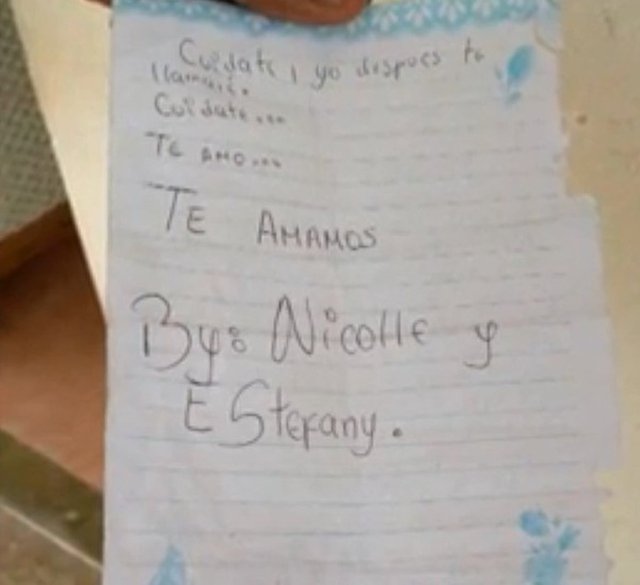 Cuidate, yo despues te
llamaré.
Cuidate...
TE AMO...
TE AMAMOS
By: Nicolle y
EStefany.